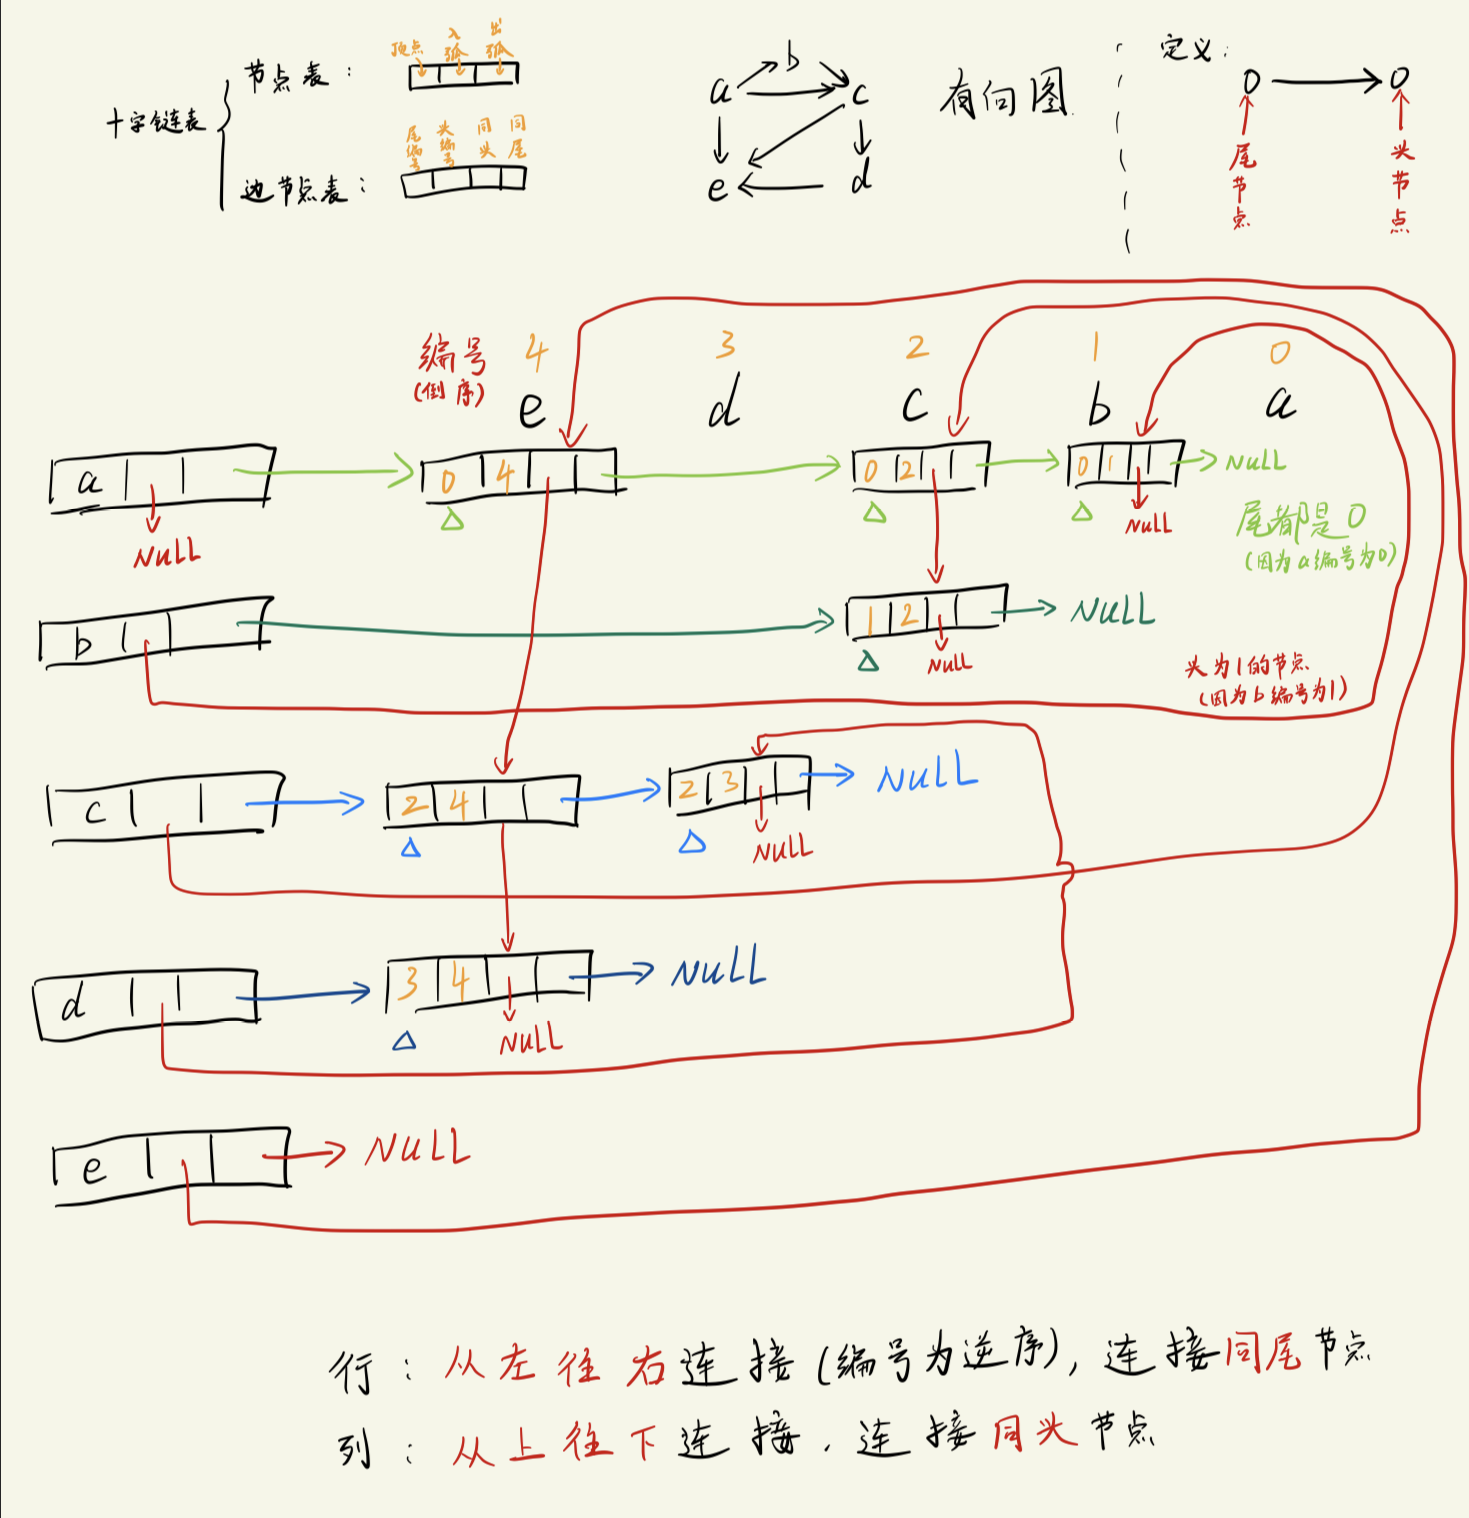 十字链表
节点表：
顶点 入弧 出弧
边节点表：
尾编号 头编号 同头 同尾
a b c
e d
有向图
定义：
尾节点
头节点
编号 4 3 2 1 0
(倒序) e d c b a
a 0 4 0 2 0 1 NULL
NULL NULL
尾都是0
(因为a编号为0)
b 1 2 NULL
NULL
头为1的节点
(因为b编号为1)
c 2 4 2 3 NULL
NULL
d 3 4 NULL
NULL
e NULL
行：从左往右连接(编号为逆序)，连接同尾节点
列：从上往下连接．连接同头节点